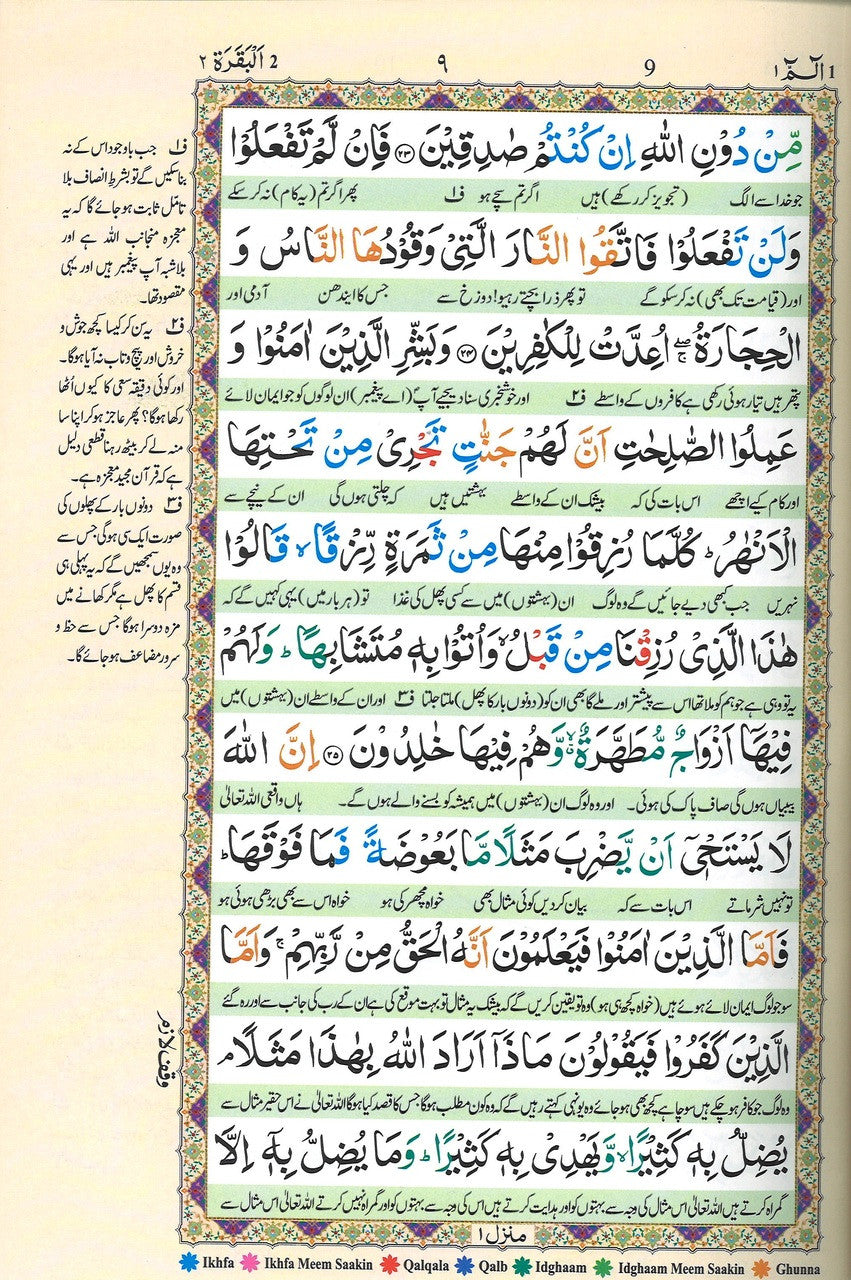 1 الٓمّٓ ۱
9
۹
2 اَلْبَقَرَة ۲
مِّنْ دُوْنِ اللّٰهِ اِنْ كُنْتُمْ صٰدِقِيْنَ ﴿۲۳﴾ فَاِنْ لَّمْ تَفْعَلُوْا
جو خدا سے الگ (تجویز کر رکھے) ہیں اگر تم سچے ہو ف۱ پھر اگر تم (یہ کام) نہ کر سکے
وَلَنْ تَفْعَلُوْا فَاتَّقُوا النَّارَ الَّتِيْ وَقُوْدُهَا النَّاسُ وَ
اور (قیامت تک بھی) نہ کر سکو گے تو پھر ذرا بچتے رہیو! دوزخ سے جس کا ایندھن آدمی اور
الْحِجَارَةُ ۖۚ اُعِدَّتْ لِلْكٰفِرِيْنَ ﴿۲۴﴾ وَبَشِّرِ الَّذِيْنَ اٰمَنُوْا وَ
پتھر ہیں تیار ہوئی رکھی ہے کافروں کے واسطے ف۲ اور خوشخبری سنا دیجیے آپؐ (اے پیغمبر) ان لوگوں کو جو ایمان لائے
عَمِلُوا الصّٰلِحٰتِ اَنَّ لَهُمْ جَنّٰتٍ تَجْرِيْ مِنْ تَحْتِهَا
اور کام کیے اچھے اس بات کی کہ بیشک ان کے واسطے بہشتیں ہیں کہ چلتی ہوں گی ان کے نیچے سے
الْاَنْهٰرُ ؕ كُلَّمَا رُزِقُوْا مِنْهَا مِنْ ثَمَرَةٍ رِّزْقًا ۙ قَالُوْا
نہریں جب کبھی دیے جائیں گے وہ لوگ ان (بہشتوں) میں سے کسی پھل کی غذا تو (ہر بار میں) یہی کہیں گے کہ
هٰذَا الَّذِيْ رُزِقْنَا مِنْ قَبْلُ ۙ وَاُتُوْا بِهٖ مُتَشَابِهًا ؕ وَلَهُمْ
یہ تو وہی ہے جو ہم کو ملا تھا اس سے پیشتر اور ملے گا بھی ان کو (دونوں بار کا پھل) ملتا جلتا ف۳ اور ان کے واسطے ان (بہشتوں) میں
فِيْهَاۤ اَزْوَاجٌ مُّطَهَّرَةٌ ۙۗ وَّهُمْ فِيْهَا خٰلِدُوْنَ ﴿۲۵﴾ اِنَّ اللّٰهَ
بیبیاں ہوں گی صاف پاک کی ہوئی۔ اور وہ لوگ ان (بہشتوں) میں ہمیشہ کو بسنے والے ہوں گے۔ ہاں واقعی اللہ تعالیٰ
لَا يَسْتَحْيٖۤ اَنْ يَّضْرِبَ مَثَلًا مَّا بَعُوْضَةً فَمَا فَوْقَهَا ؕ
تو نہیں شرماتے اس بات سے کہ بیان کر دیں کوئی مثال بھی خواہ مچھر کی ہو خواہ اس سے بھی بڑھی ہوئی ہو
فَاَمَّا الَّذِيْنَ اٰمَنُوْا فَيَعْلَمُوْنَ اَنَّهُ الْحَقُّ مِنْ رَّبِّهِمْ ۚ وَاَمَّا
سو جو لوگ ایمان لائے ہوئے ہیں (خواہ کچھ ہی ہو) وہ تو یقین کریں گے کہ بیشک یہ مثال تو بہت موقع کی ہے ان کے رب کی جانب سے اور رہ گئے
الَّذِيْنَ كَفَرُوْا فَيَقُوْلُوْنَ مَاذَاۤ اَرَادَ اللّٰهُ بِهٰذَا مَثَلًا ۘ
وہ لوگ جو کافر ہو چکے ہیں سو چاہے کچھ بھی ہو جاوے وہ یونہی کہتے رہیں گے کہ وہ کون مطلب ہوگا جس کا قصد کیا ہوگا اللہ تعالیٰ نے اس حقیر مثال سے
يُضِلُّ بِهٖ كَثِيْرًا ۙ وَّيَهْدِيْ بِهٖ كَثِيْرًا ؕ وَمَا يُضِلُّ بِهٖۤ اِلَّا
گمراہ کرتے ہیں اللہ تعالیٰ اس مثال کی وجہ سے بہتوں کو اور ہدایت کرتے ہیں اس کی وجہ سے بہتوں کو اور گمراہ نہیں کرتے اللہ تعالیٰ اس مثال سے
منزل ۱
ف۱ جب باوجود اس کے نہ
بنا سکیں گے تو بشرط انصاف بلا
تامل ثابت ہو جائے گا کہ یہ
معجزہ منجانب اللہ ہے اور
بلاشبہ آپ پیغمبر ہیں اور یہی
مقصود تھا۔
ف۲ یہ سن کر کیسا کچھ جوش و
خروش اور پیچ و تاب نہ آیا ہوگا۔
اور کوئی دقیقہ سعی کا کیوں اُٹھا
رکھا ہوگا؟ پھر عاجز ہو کر اپنا سا
منہ لے کر بیٹھ رہنا قطعی دلیل
ہے کہ قرآن مجید معجزہ ہے۔
ف۳ دونوں بار کے پھلوں کی
صورت ایک سی ہوگی جس سے
وہ یوں سمجھیں گے کہ یہ پہلی ہی
قسم کا پھل ہے مگر کھانے میں
مزہ دوسرا ہوگا جس سے حظ و
سرور مضاعف ہو جائے گا۔
وقف لازم
Ikhfa Ikhfa Meem Saakin Qalqala Qalb Idghaam Idghaam Meem Saakin Ghunna